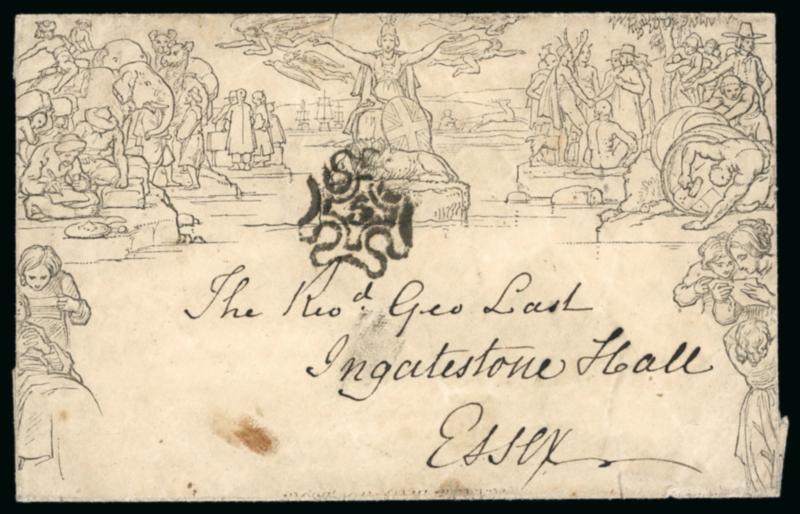 5
The Revd. Geo Last
Ingatestone Hall
Essex